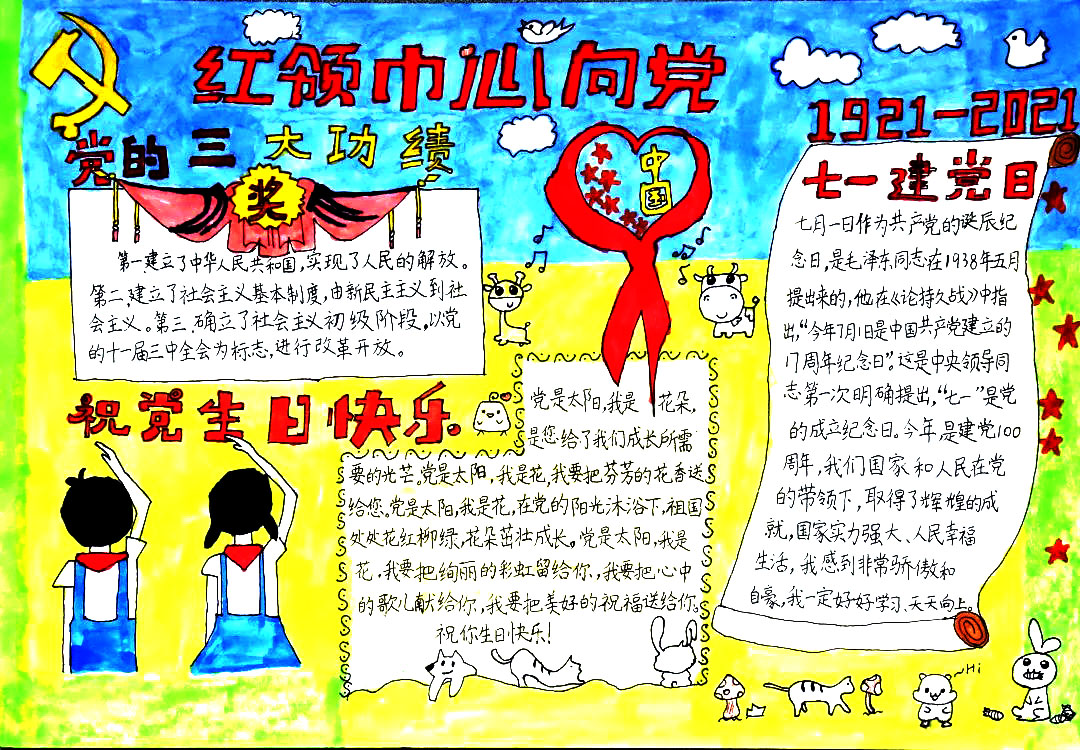 红领巾心向党
党的三大功绩
奖
第一建立了中华人民共和国,实现了人民的解放。
第二,建立了社会主义基本制度,由新民主主义到社
会主义。第三、确立了社会主义初级阶段。以党
的十一届三中全会为标志,进行改革开放。
中国
1921-2021
七一建党日
七月一日作为共产党的诞辰纪
念日,是毛泽东同志在1938年五月
提出来的,他在《论持久战》中指
出,“今年7月1日是中国共产党建立的
17周年纪念日”。这是中央领导同
志第一次明确提出,“七一”是党
的成立纪念日。今年是建党100
周年,我们国家和人民在党
的带领下,取得了辉煌的成
就,国家实力强大、人民幸福
生活,我感到非常骄傲和
自豪,我一定好好学习、天天向上。
祝党生日快乐
党是太阳,我是花朵,
是您给了我们成长所需
要的光芒。党是太阳,我是花,我要把芬芳的花香送
给您。党是太阳,我是花,在党的阳光沐浴下,祖国
处处花红柳绿,花朵茁壮成长。党是太阳,我是
花,我要把绚丽的彩虹留给你,我要把心中
的歌儿献给你,我要把美好的祝福送给你。
祝你生日快乐!
Hi